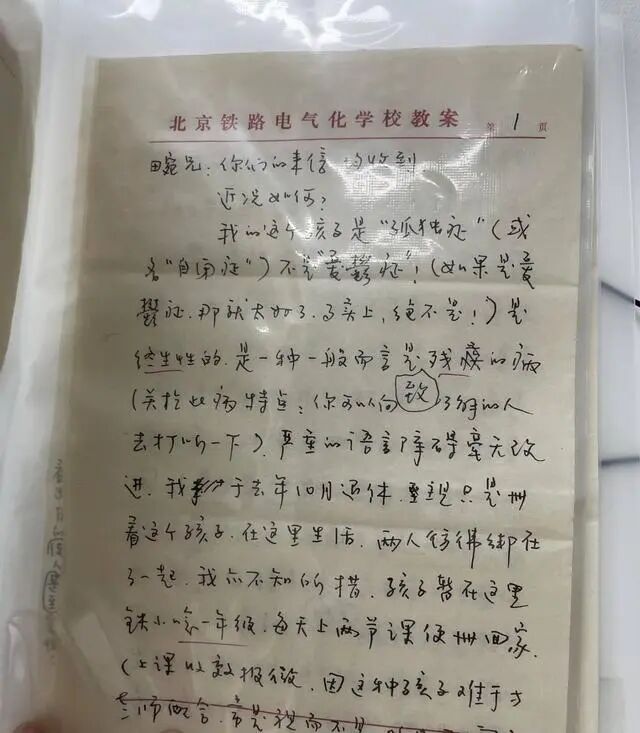 北京铁路电气化学校教案 第 1 页
田宛兄：你们的来信均收到
近况如何？
我的这个孩子是“孤独症”（或
名“自闭症”）不是“憂鬱症”！（如果是憂
鬱症，那就太好了，事实上，绝不是！）是
终生性的，是一种一般而言是残癈的病
（关于此病特点，你可以向 致 了解的人
去打听一下），严重的语言障碍毫无改
进，我于去年10月退休，重现只是卅
着这个孩子，在这里生活，两人仿彿绑在
了一起，我亦不知所措，孩子暂在这里
铁小念一年级，每天上两节课便卅回家，
（上课收效极微，因这种孩子难于与
老师配合，常是视而不是